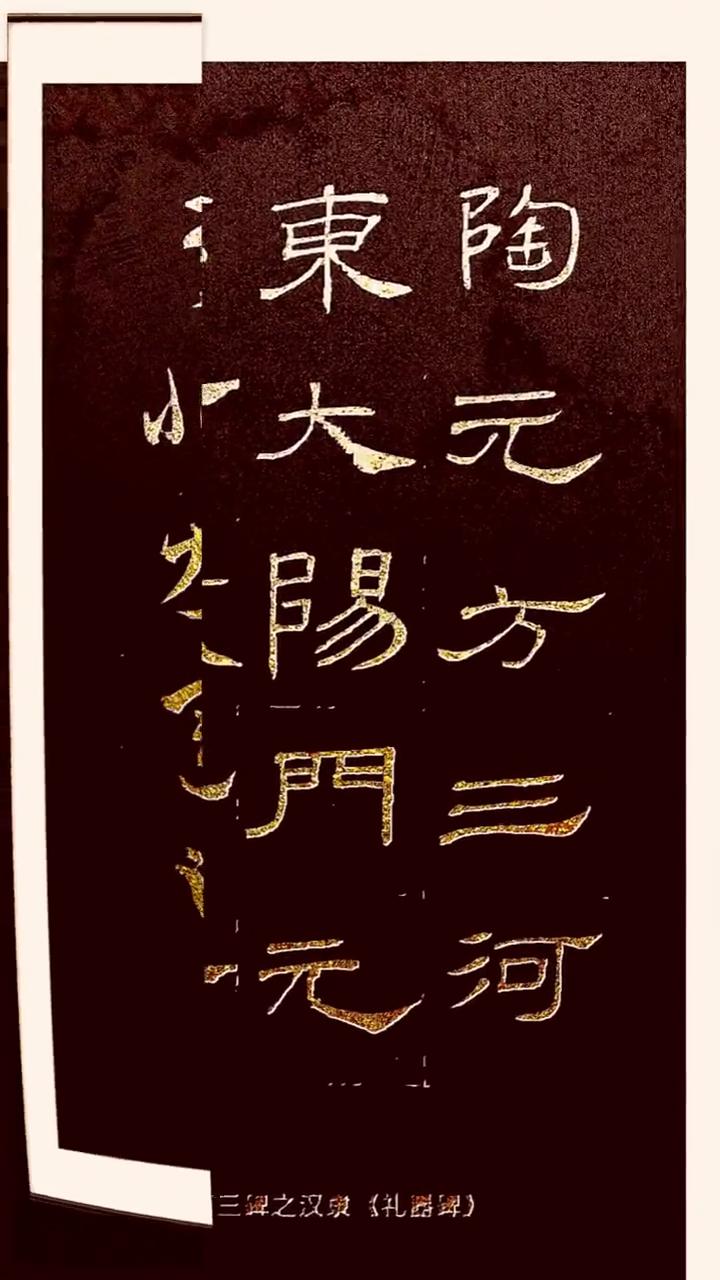 陶元方三河
東大陽門元
三碑之汉隶《礼器碑》